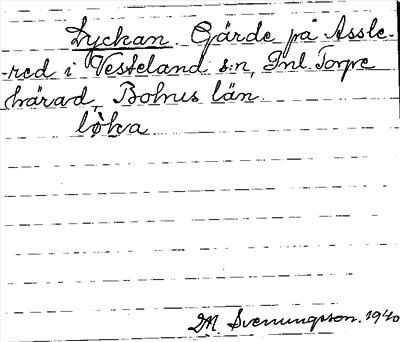 Lyckan. Gärde på Assle-
red i Vesteland s:n, Inl. Torpe
härad, Bohus län.
løka
M. Svenungsson. 1940